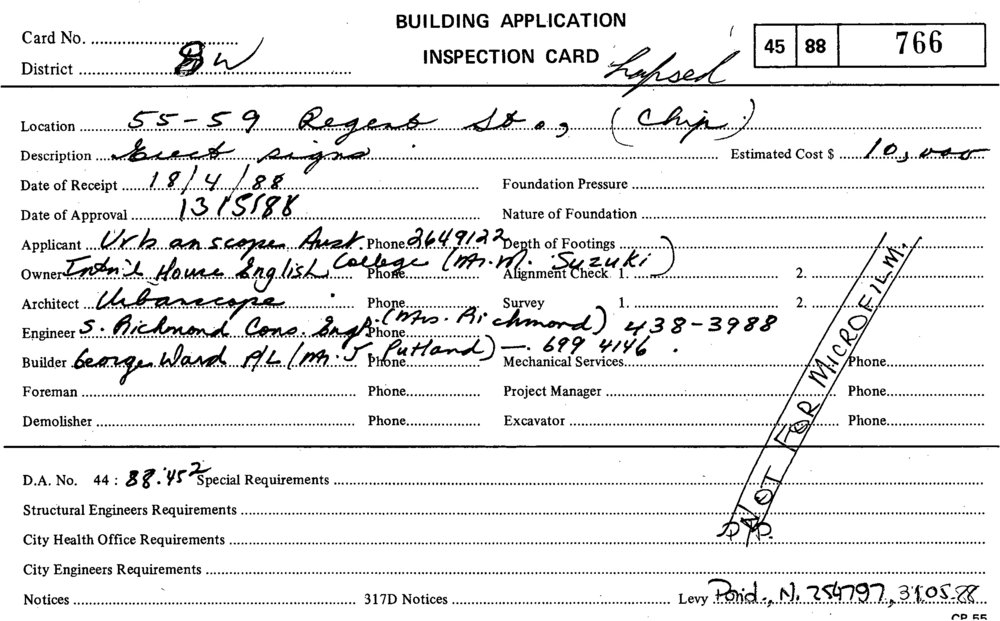 BUILDING APPLICATION
INSPECTION CARD
Card No.
District 8W
Lapsed
45 88 766
Location 55-59 Regent St., (Chip.)
Description Erect signs
Estimated Cost $ 10,000
Date of Receipt 18/4/88
Foundation Pressure
Date of Approval 13/5/88
Nature of Foundation
Applicant Urbanscope Aust. Phone 2649122
Depth of Footings
Owner Intn'l House English College (Mr. M. Suzuki) Phone
Alignment Check 1. 2.
Architect Urbanscope Phone
Survey 1. 2.
Engineer S. Richmond Cons. Engr. (Mrs. Richmond) 438-3988 Phone
Builder George Ward P/L (Mr. J Putland) - 699 4146. Phone
Mechanical Services Phone
Foreman Phone
Project Manager Phone
Demolisher Phone
Excavator Phone
NOT FOR MICROFILM.
D.A. No. 44 : 88.452 Special Requirements
Structural Engineers Requirements
City Health Office Requirements
City Engineers Requirements
Notices 317D Notices Levy Paid., N. 254797, 31.05.88
CP 55